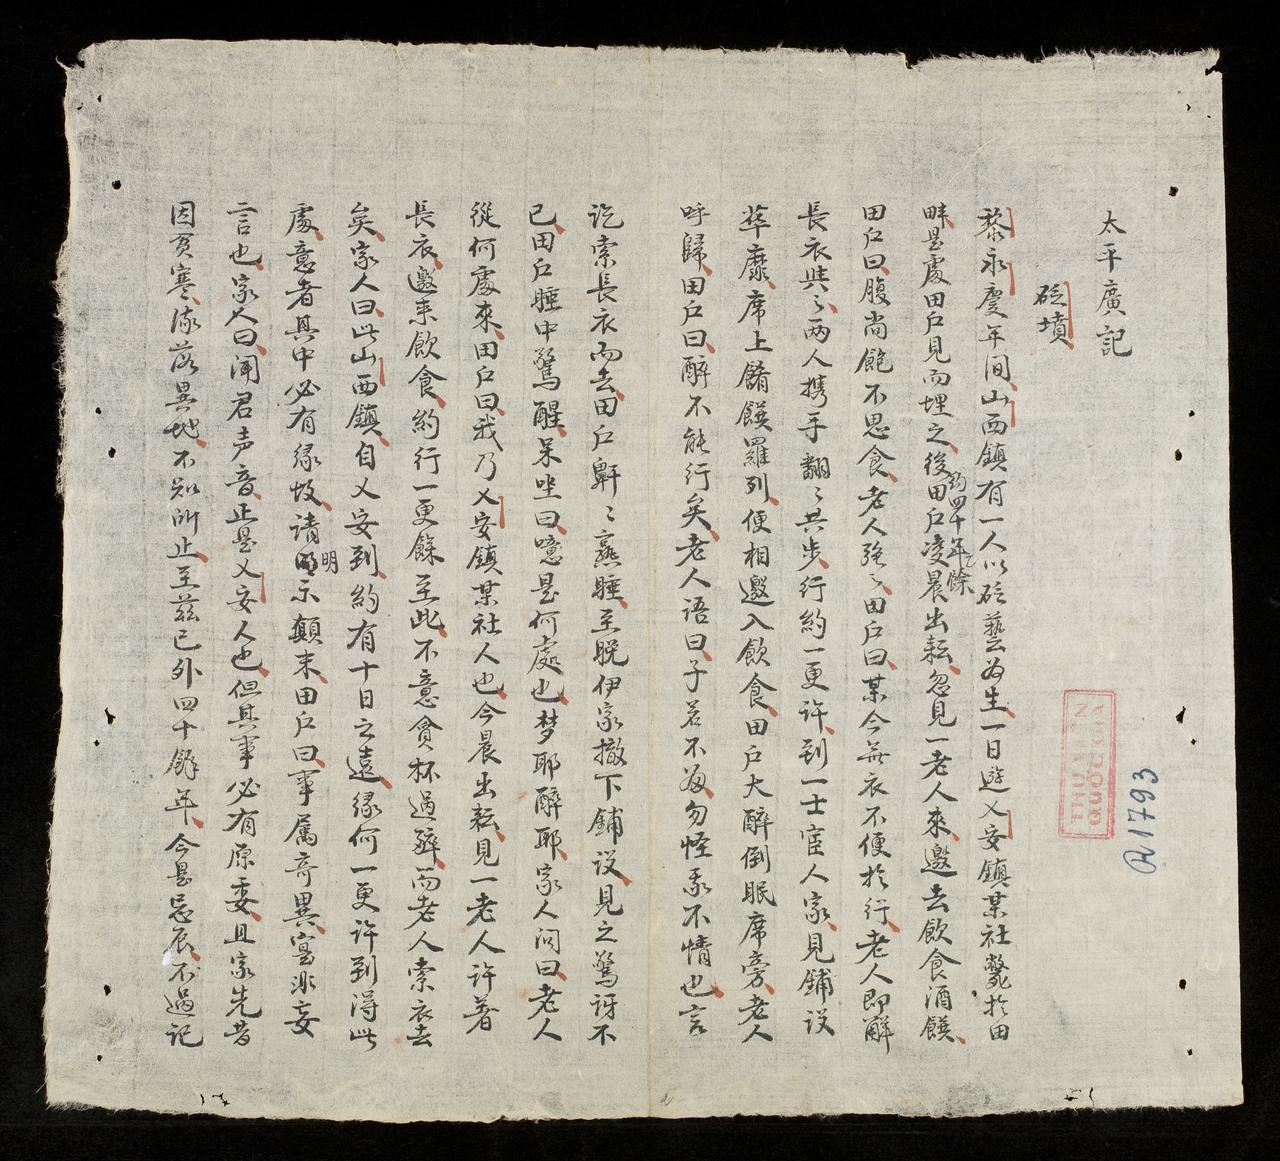 太平廣記
砭墳
黎永慶年间山西鎮有一人以砭藝为生一日遊乂安鎮某社斃於田
畔是處田戶見而埋之後約四十年餘田戶凌晨出耘忽見一老人來邀去飲食酒饌
田戶曰腹尚飽不思食老人強〻田戶曰某今無衣不便於行老人即解
長衣與之两人携手翻〻共步行約一更许到一士宦人家見鋪设
華靡席上餚饌羅列便相邀入飲食田戶大醉倒眠席旁老人
呼歸田戶曰醉不能行矣老人语曰子若不返勿怪我不情也言
訖索長衣而去田戶鼾〻熟睡至晚伊家撤下鋪设見之驚訝不
已田戶睡中驚醒呆坐曰噫是何處也梦耶醉耶家人问曰老人
從何處來田戶曰我乃乂安鎮某社人也今晨出耘見一老人许著
長衣邀来飲食約行一更餘至此不意貪杯過醉而老人索衣去
矣家人曰此山西鎮自乂安到約有十日之遠缘何一更许到得此
處意者其中必有缘故请明明示顛末田戶曰事属奇異寔非妄
言也家人曰闻君声音正是乂安人也但其事必有原委且家先昔
因貧寒流落異地不知所止至茲已外四十餘年今是忌辰不過記
THƯ VIỆN
QUỐC GIA
R 1793